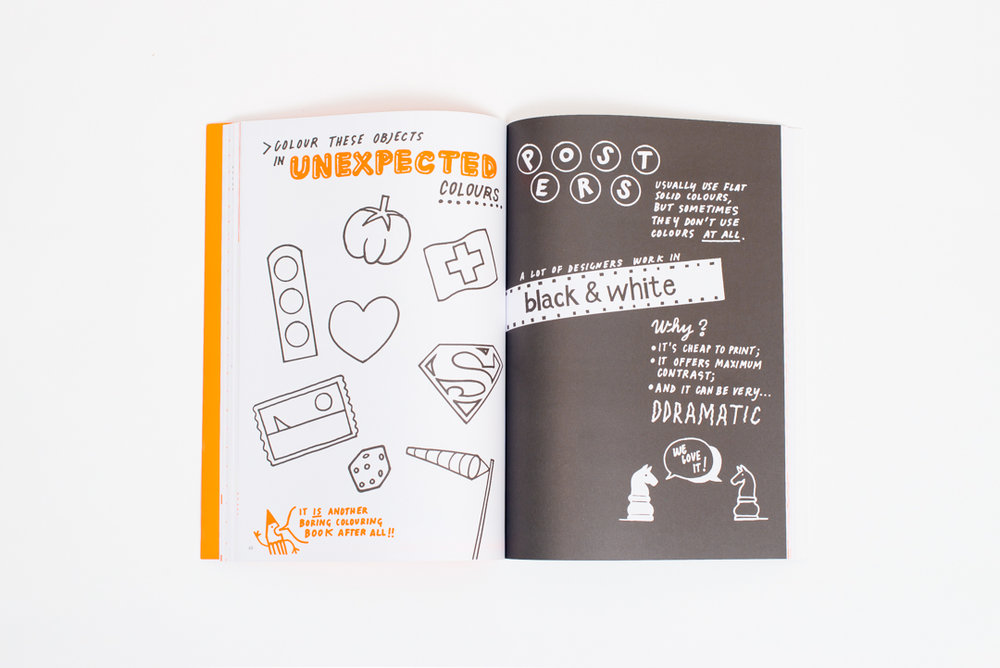 >COLOUR THESE OBJECTS
IN UNEXPECTED
COLOURS
S
IT IS ANOTHER
BORING COLOURING
BOOK AFTER ALL!!
POST
ERS
USUALLY USE FLAT
SOLID COLOURS,
BUT SOMETIMES
THEY DON'T USE
COLOURS AT ALL.
A LOT OF DESIGNERS WORK IN
black & white
Why?
• IT'S CHEAP TO PRINT;
• IT OFFERS MAXIMUM
CONTRAST;
• AND IT CAN BE VERY...
DDRAMATIC
WE
LOVE
IT!